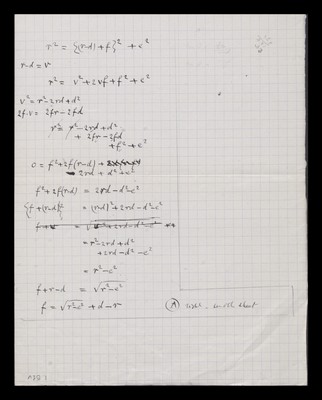 r² = {(r-d) + f}² + c²
r-d = v
r² = v² + 2vf + f² + c²
v² = r² - 2rd + d²
2f·v = 2fr - 2fd
r² = r² - 2rd + d²
+ 2fr - 2fd
+ f² + c²
0 = f² + 2f(r-d) +
- 2rd + d² + c²
f² + 2f(r-d) = 2rd - d² - c²
{f + (r-d)}² = (r-d)² + 2rd - d² - c²
= r² - 2rd + d²
+ 2rd - d² - c²
= r² - c²
f + r - d = √r² - c²
f = √r² - c² + d - r
(A)